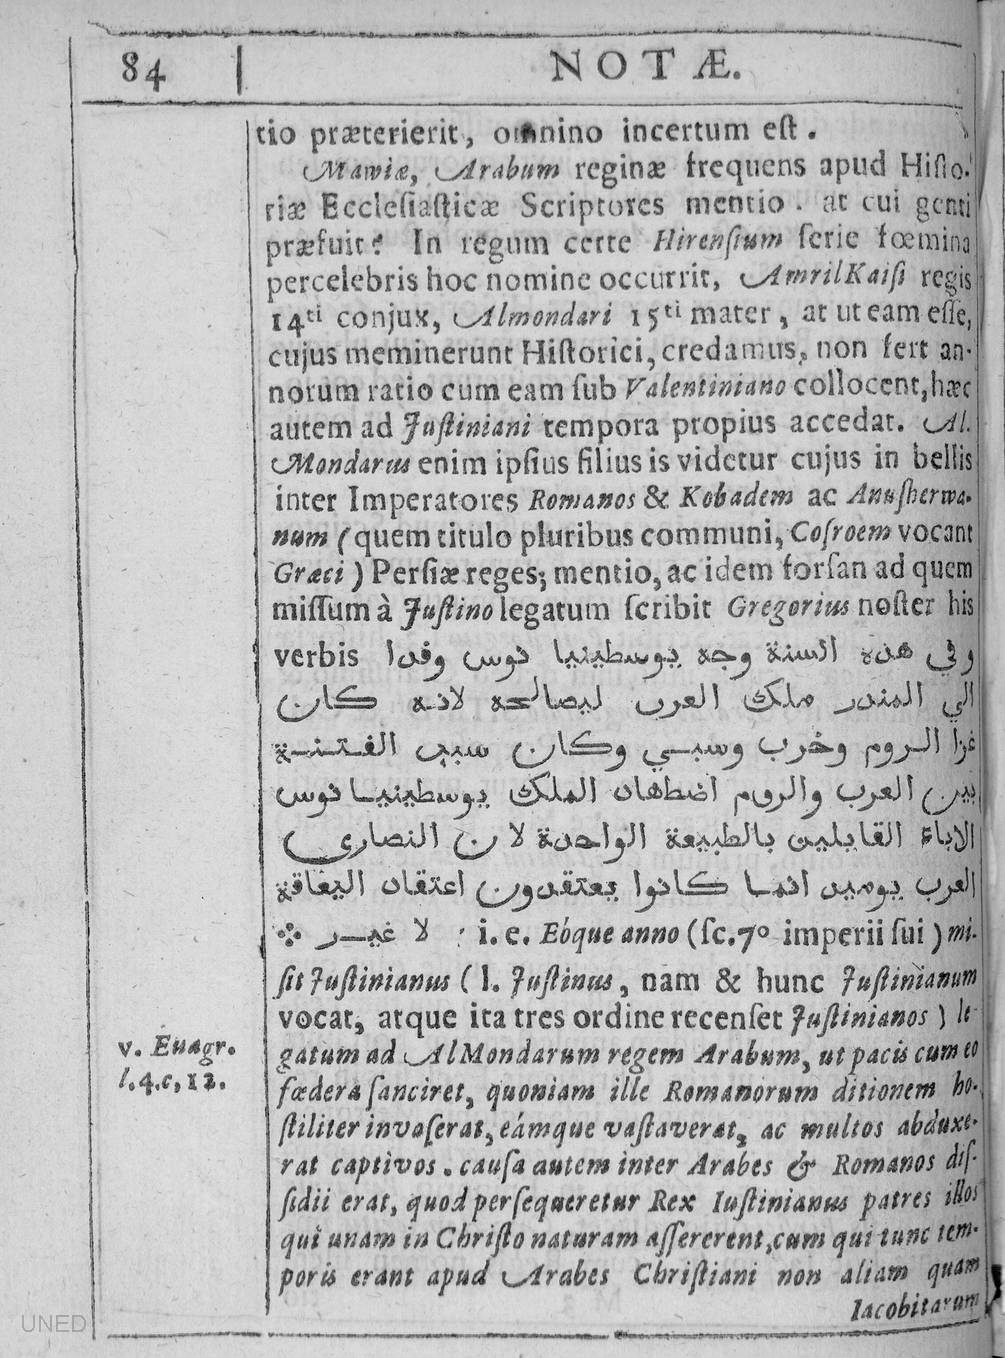 84 NOTÆ.
tio præterierit, omnino incertum eſt.
Mawiæ, Arabum reginæ frequens apud Hiſto-
riæ Eccleſiaſticæ Scriptores mentio. at cui genti
præfuit? In regum certe Hirenſium ſerie fœmina
percelebris hoc nomine occurrit, AmrilKaiſi regis
14ti conjux, Almondari 15ti mater, at ut eam eſſe,
cujus meminerunt Hiſtorici, credamus, non fert an-
norum ratio cum eam ſub Valentiniano collocent, hæc
autem ad Juſtiniani tempora propius accedat. Al.
Mondarus enim ipſius filius is videtur cujus in bellis
inter Imperatores Romanos & Kobadem ac Anuſherwa-
num (quem titulo pluribus communi, Coſroem vocant
Græci) Perſiæ reges; mentio, ac idem forſan ad quem
miſſum à Juſtino legatum ſcribit Gregorius noſter his
verbis وفي هذه السنة وجه يوسطينيا نوس وفدا
الي المنذر ملك العرب ليصالحه لانه كان
غزا الروم وخرب وسبي وكان سبب الفتنة
بين العرب والروم اضطهاد الملك يوسطينيا نوس
الاباء القايلين بالطبيعة الواحدة لان النصاري
العرب يوميذ انما كانوا يعتقدون اعتقاد اليعاقبة
لا غير : i. e. Eóque anno (ſc. 7º imperii ſui) mi-
ſit Juſtinianus (l. Juſtinus, nam & hunc Juſtinianum
vocat, atque ita tres ordine recenſet Juſtinianos) le-
gatum ad AlMondarum regem Arabum, ut pacis cum eo
v. Euagr.
l.4.c,12.
fœdera ſanciret, quoniam ille Romanorum ditionem ho-
ſtiliter invaſerat, eámque vaſtaverat, ac multos abduxe-
rat captivos. cauſa autem inter Arabes & Romanos diſ-
ſidii erat, quod perſequeretur Rex Iuſtinianus patres illos
qui unam in Chriſto naturam aſſererent, cum qui tunc tem-
poris erant apud Arabes Chriſtiani non aliam quam
Iacobitarum
UNED